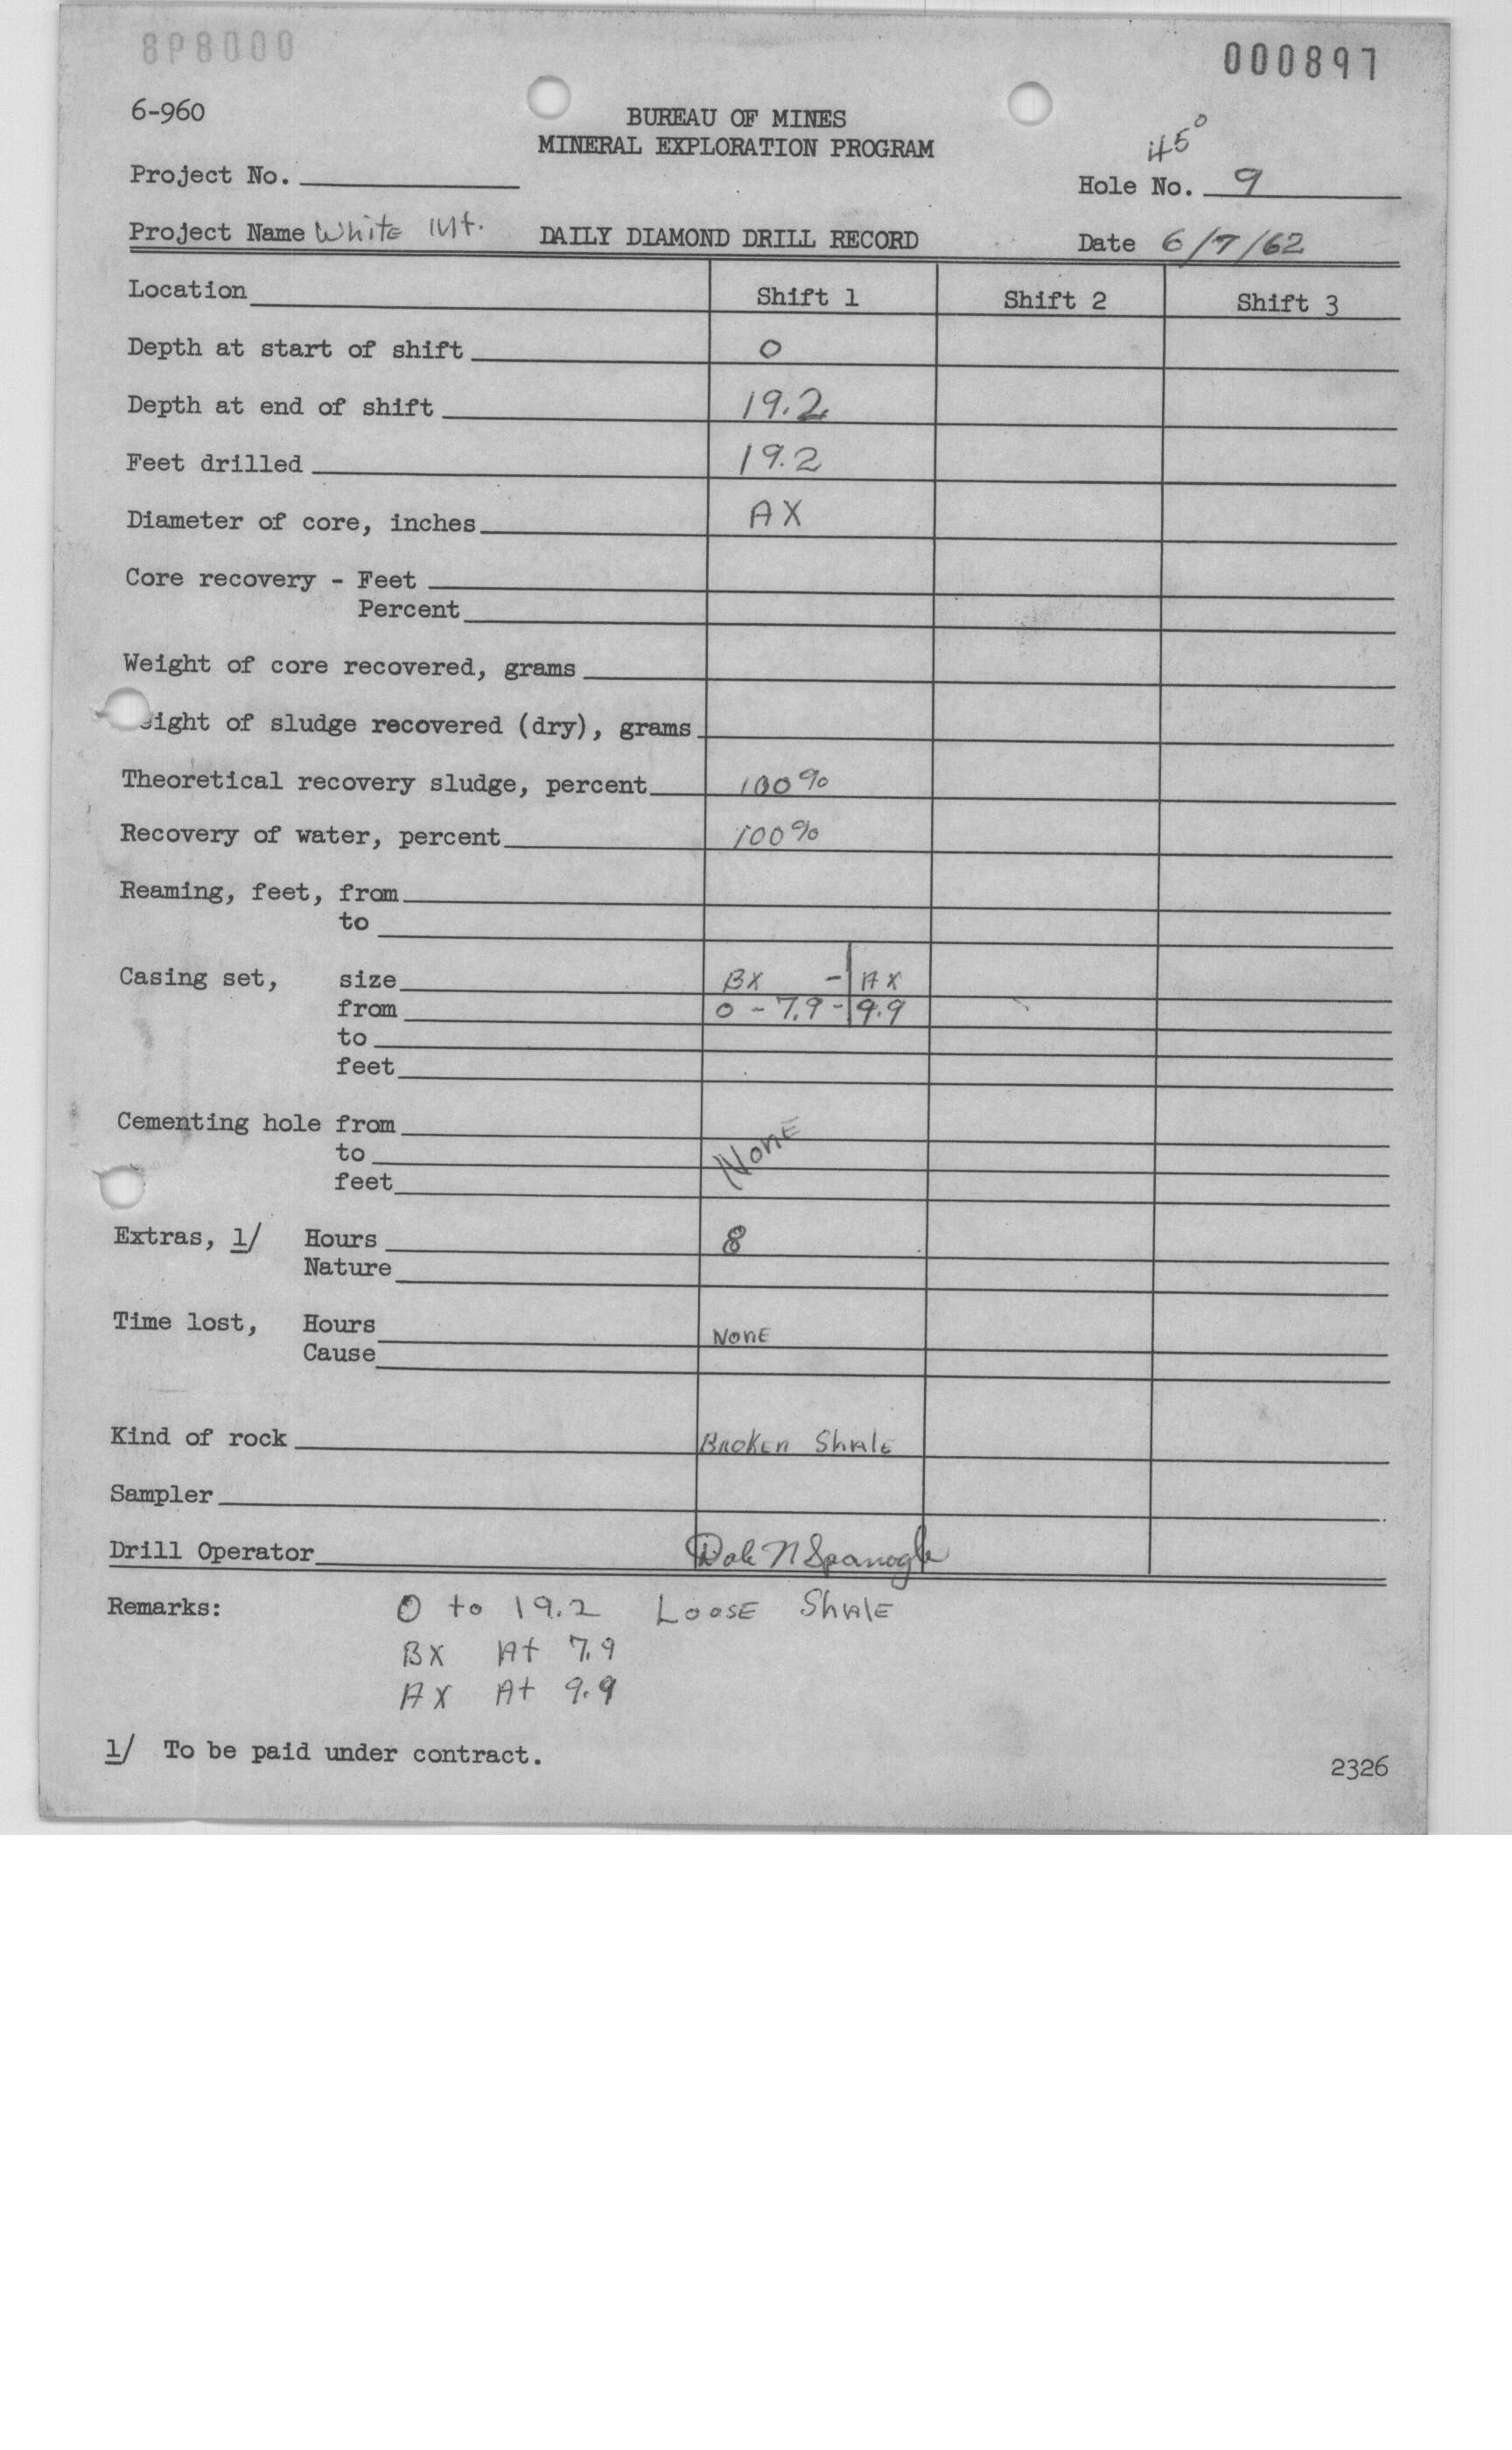 000897
6-960
BUREAU OF MINES
MINERAL EXPLORATION PROGRAM
45°
Project No.
Hole No. 9
Project Name White Mt. DAILY DIAMOND DRILL RECORD Date 6/7/62
Location Shift 1 Shift 2 Shift 3
Depth at start of shift 0
Depth at end of shift 19.2
Feet drilled 19.2
Diameter of core, inches AX
Core recovery - Feet
Percent
Weight of core recovered, grams
eight of sludge recovered (dry), grams
Theoretical recovery sludge, percent 100%
Recovery of water, percent 100%
Reaming, feet, from
to
Casing set, size BX - AX
from 0 - 7.9 - 9.9
to
feet
Cementing hole from
to None
feet
Extras, 1/ Hours 8
Nature
Time lost, Hours None
Cause
Kind of rock Broken Shale
Sampler
Drill Operator Dale N Spanogle
Remarks: 0 to 19.2 Loose Shale
BX At 7.9
AX At 9.9
1/ To be paid under contract.
2326